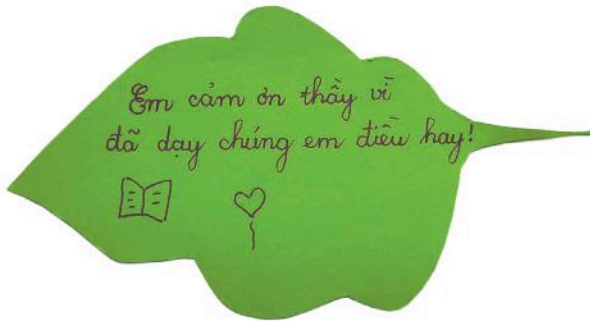 Em cảm ơn thầy vì
đã dạy chúng em điều hay!